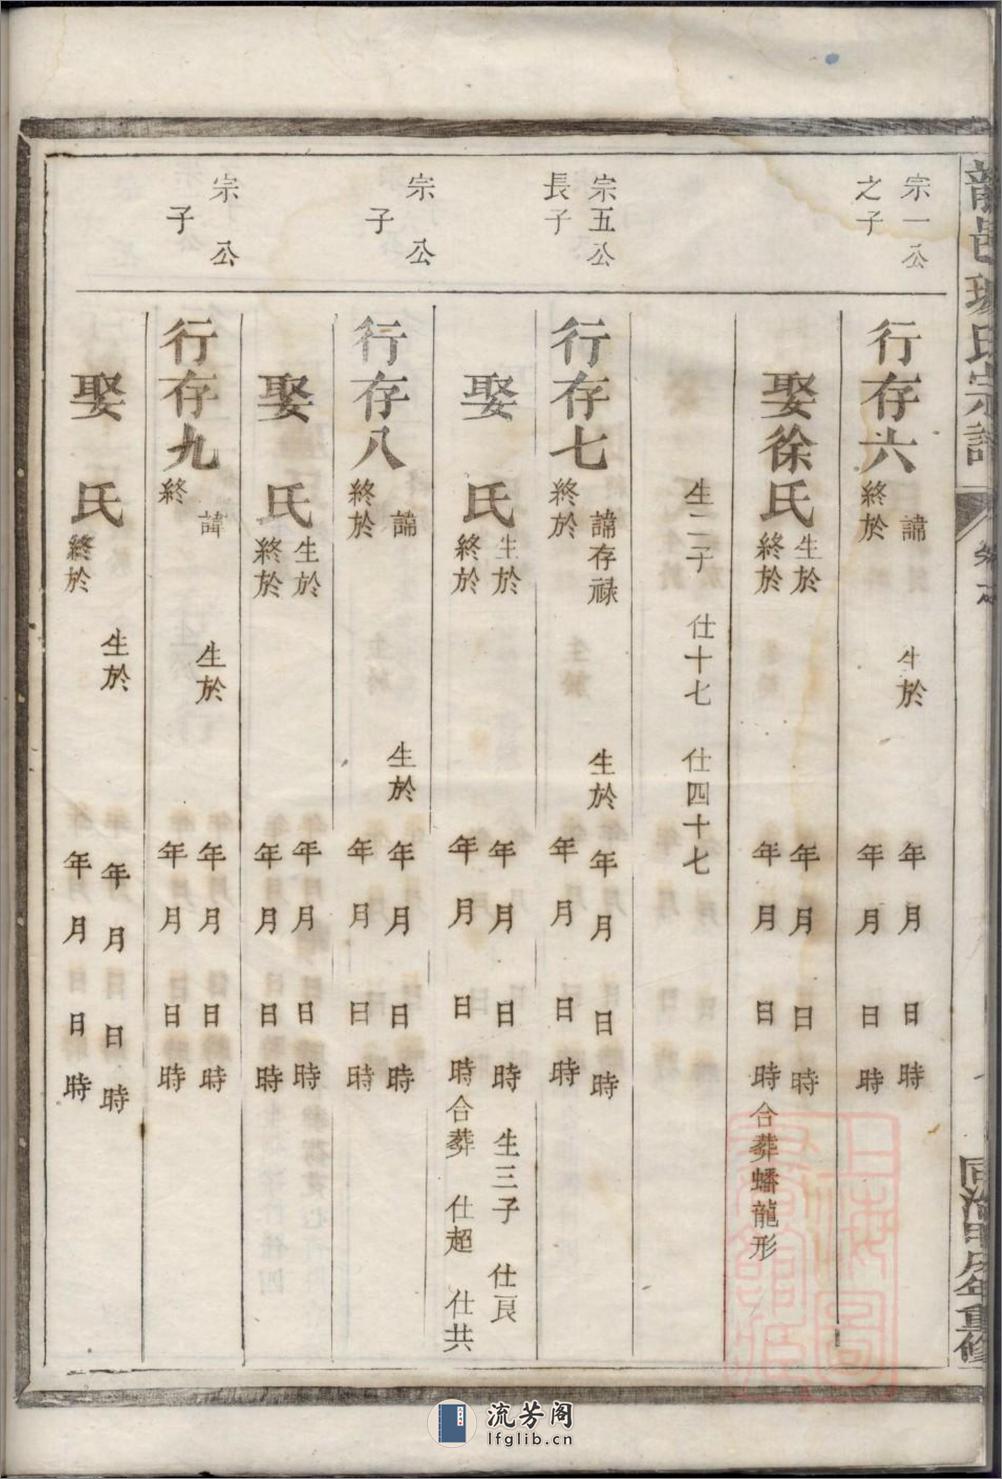 宗一公
之子
行存六
諱 生於 年月日時
終於 年月日時
娶徐氏
生於 年月日時
終於 年月日時合葬蟠龍形
生二子 仕十七 仕四十七
宗五公
長子
行存七
諱存禄 生於 年月日時
終於 年月日時
娶 氏
生於 年月日時 生三子 仕良
終於 年月日時合葬 仕超 仕共
宗 公
子
行存八
諱 生於 年月日時
終於 年月日時
娶 氏
生於 年月日時
終於 年月日時
宗 公
子
行存九
諱 生於 年月日時
終 年月日時
娶 氏
生於 年月日時
終於 年月日時
氏宗譜
年重修
流芳阁
lfglib.cn